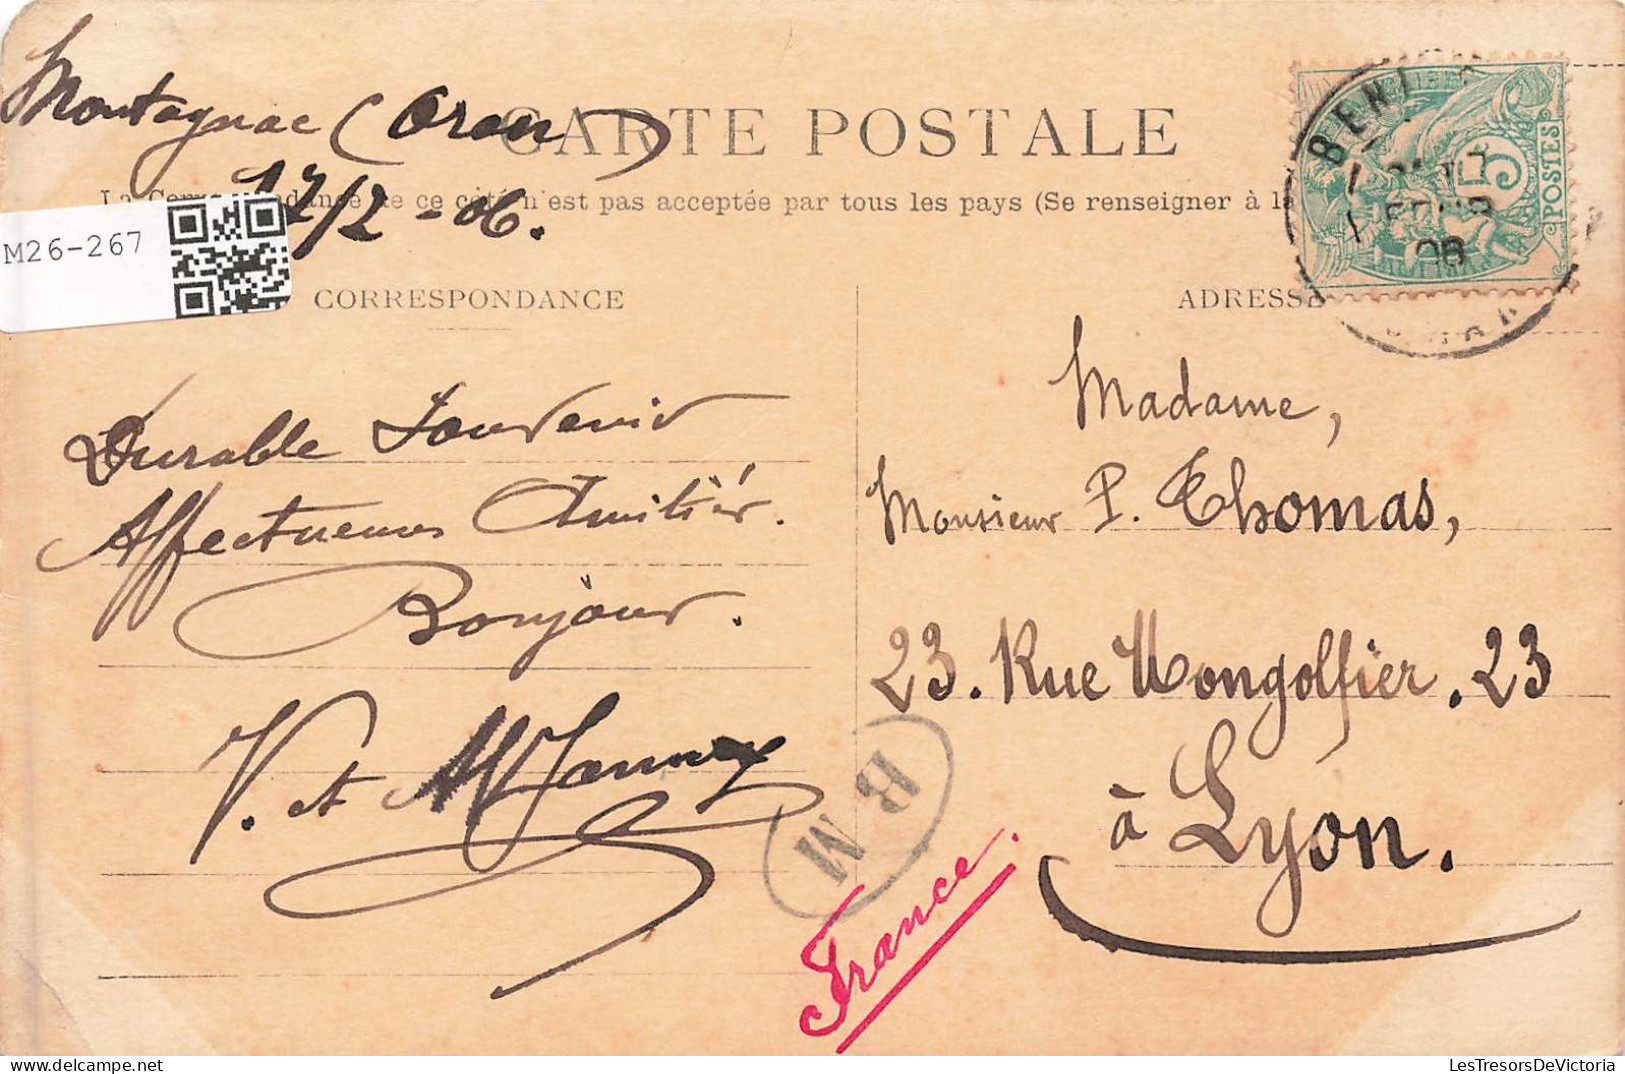 Montagnac (Oran)
17/2-06.
CARTE POSTALE
La Correspondance de ce côté n'est pas acceptée par tous les pays (Se renseigner à la
M26-267
CORRESPONDANCE
ADRESSE
BENI
06
5
POSTES
Durable Souvenir
Affectueuses Amitiés.
Bonjour.
V. et
Madame,
Monsieur P. Thomas,
23. Rue Mongolfier. 23
à Lyon.
BM
France.
LesTresorsDeVictoria